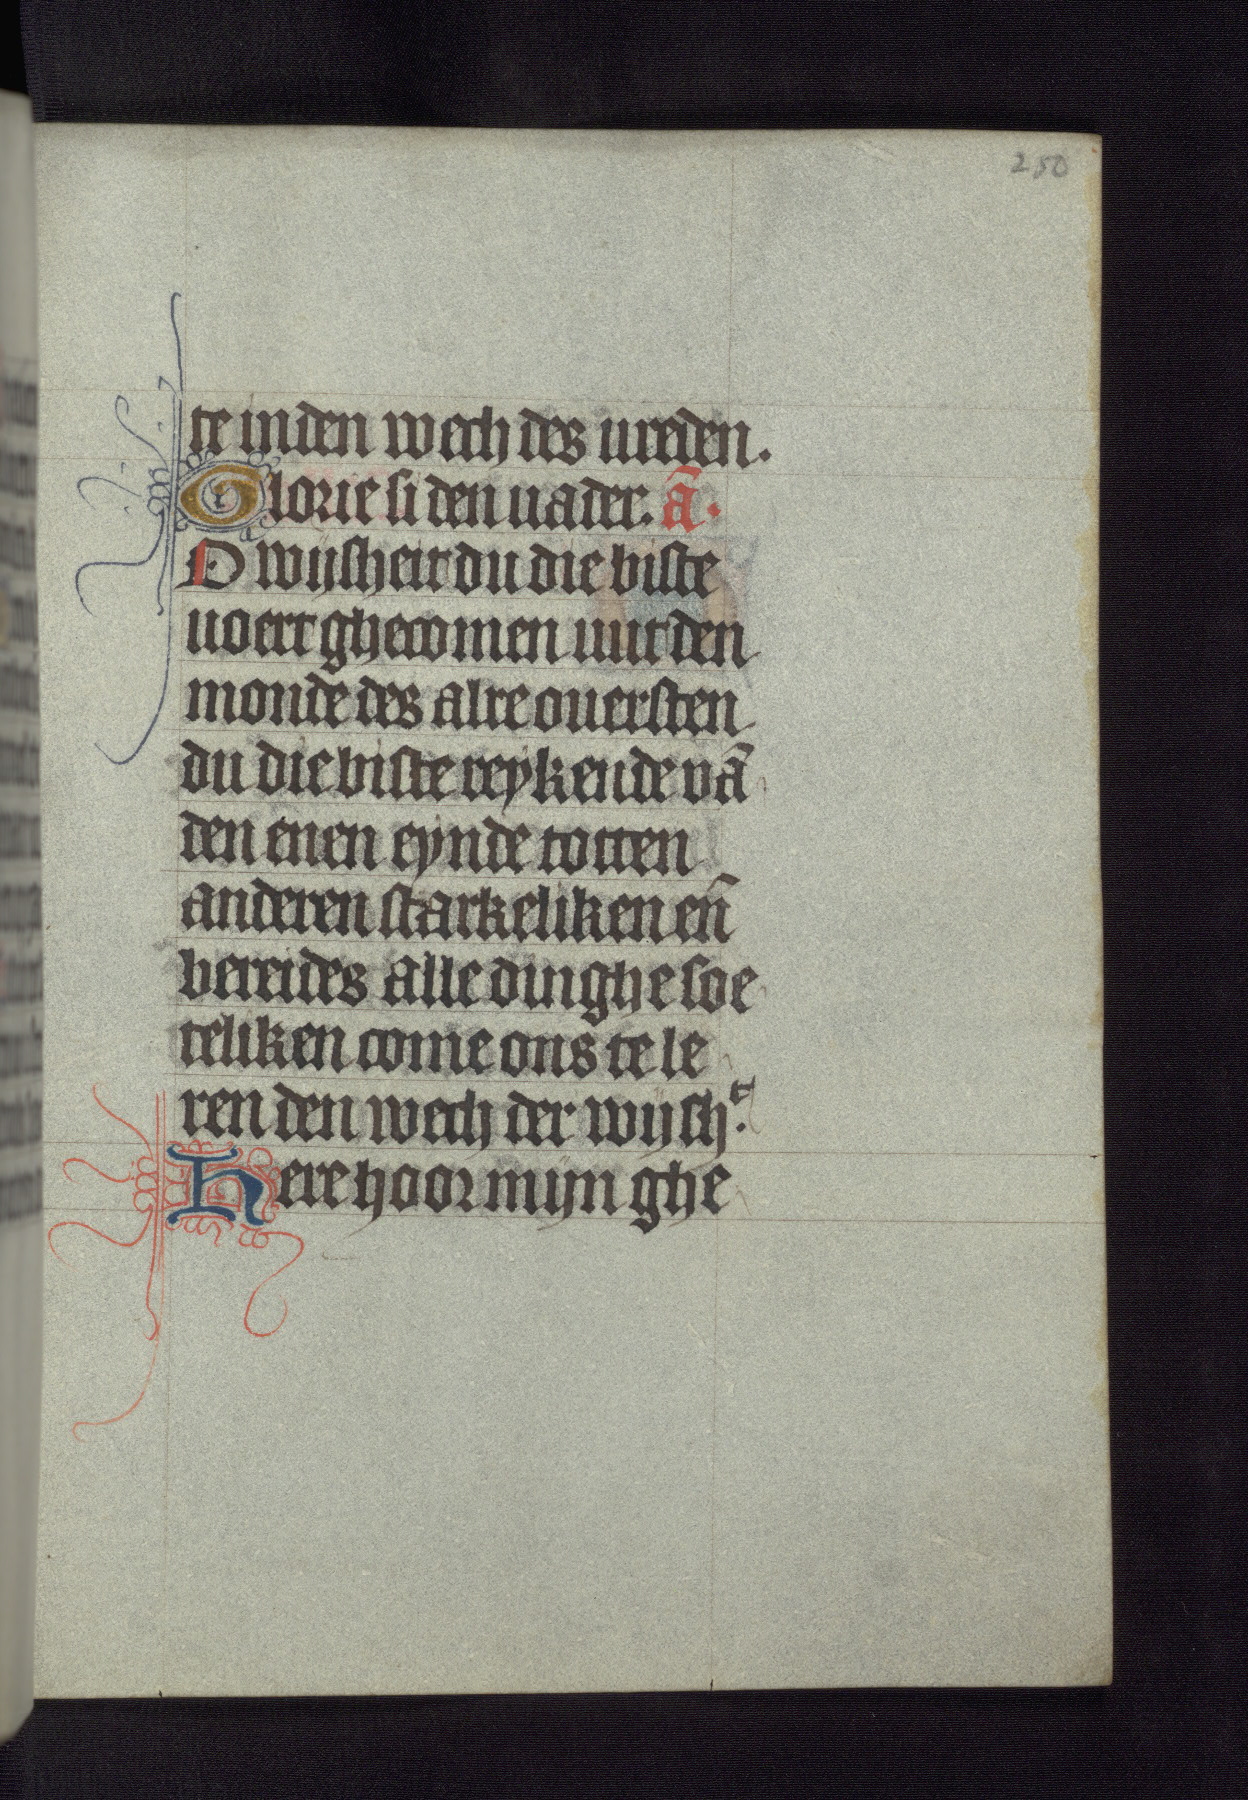 250
te in den wech des vreden.
Glorie si den uader. ā.
O wijsheit du die biste
uoert ghecomen uut den
monde des alre ouersten
du die biste reykende vā
den enen eynde totten
anderen starkeliken en̄
bereides alle dinghe soe
teliken come ons te le
ren den wech der wijshᵗ.
Here hoor mijn ghe